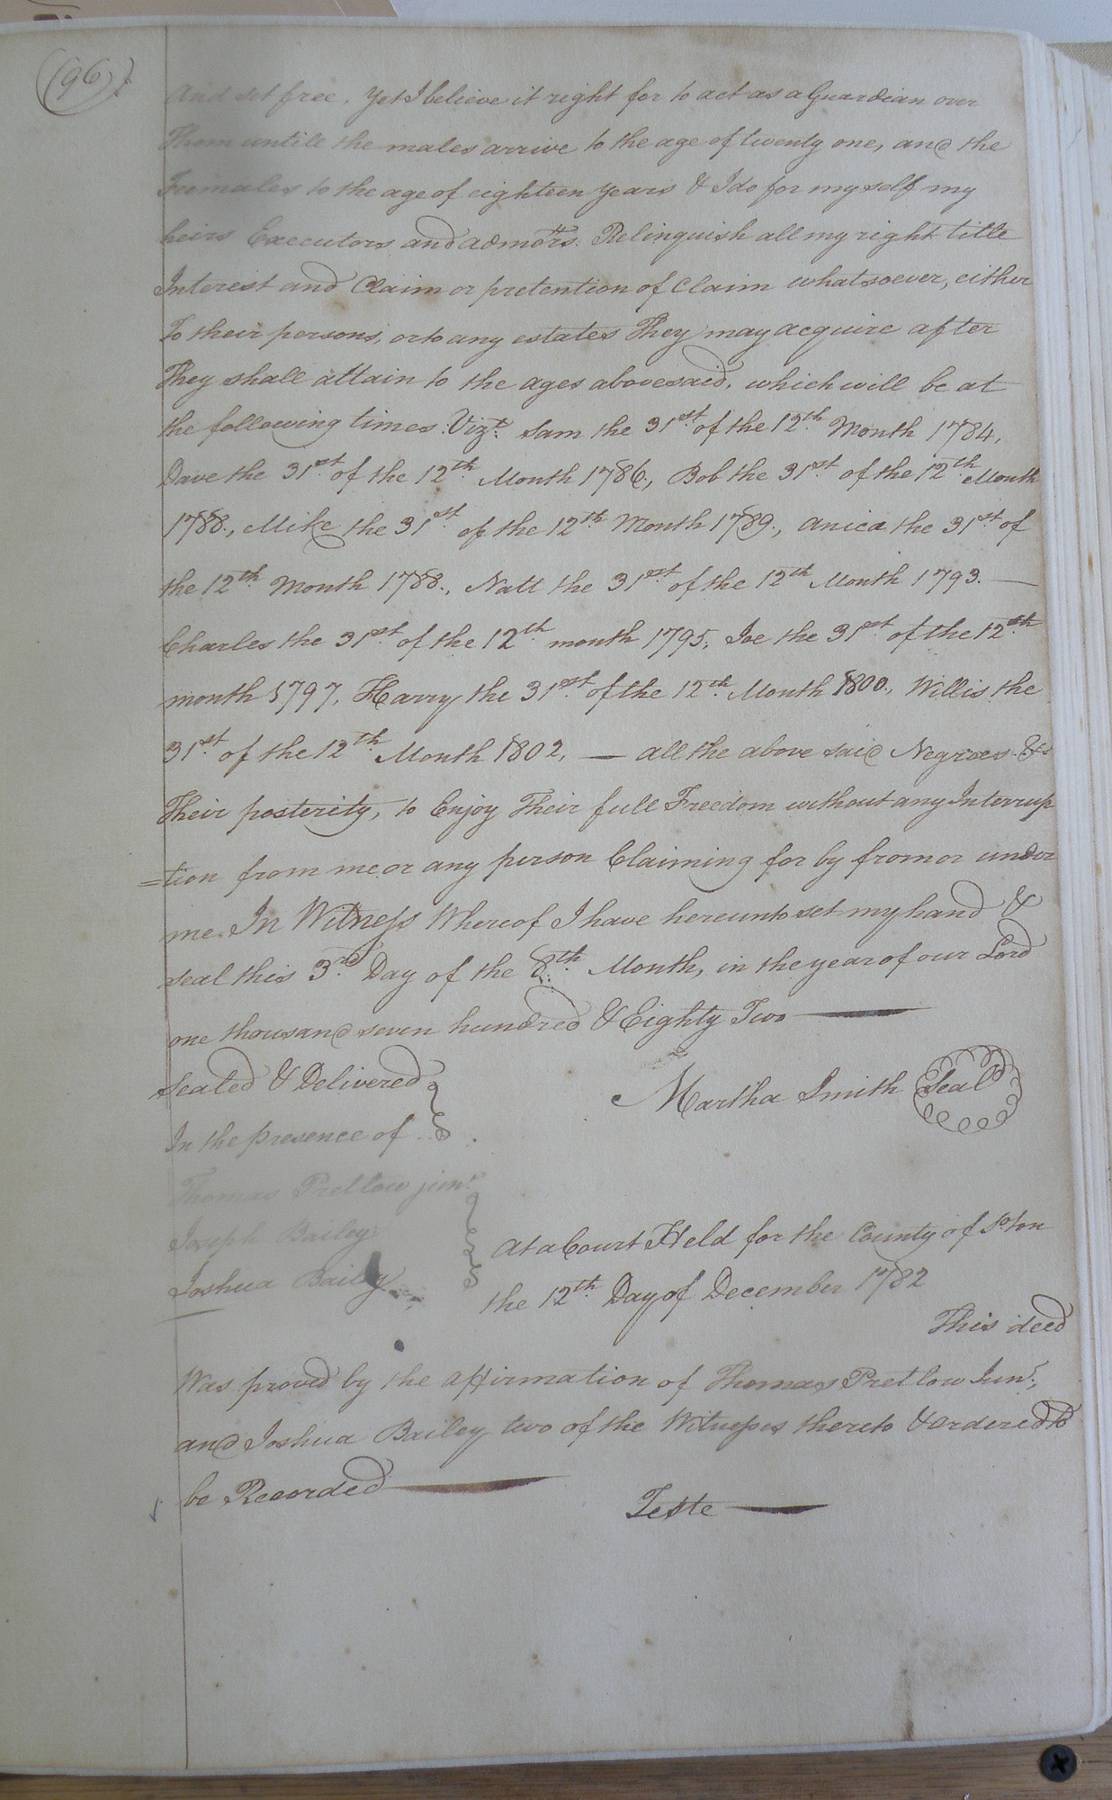 (96)
And set free, yet I believe it right for to act as a Guardian over
Them untile the males arrive to the age of twenty one, and the
Feemales to the age of eighteen years & I do for my self my
heirs Executors and admors. Relinquish all my right title
Interest and Claim or pretention of Claim whatsoever, either
To their persons, or to any estates They may acquire after
They shall attain to the ages abovesaid, which will be at
the following times. Vizt. Sam the 31st. of the 12th. Month 1784,
Dave the 31st. of the 12th. Month 1786, Bob the 31st. of the 12th. Month
1788., Mike the 31st of the 12th Month 1789., Anica the 31st. of
the 12th Month 1788., Natt the 31st. of the 12th Month 1793. —
Charles the 31st. of the 12th. month 1795, Joe the 31st of the 12th
month 1797, Harry the 31st. of the 12th. Month 1800., Willis the
31st. of the 12th. Month 1802, — all the above said Negroes &
Their posterity, to Enjoy Their full Freedom without any Interrup
=tion from me or any person Claiming for by from or under
me. In Witness Whereof I have hereunto set my hand &
seal this 3rd. Day of the 8th. Month, in the year of our Lord
one thousand seven hundred & Eighty Two —
Sealed & Delivered
Martha Smith Seal
In the presence of
Thomas Pretlow junr.
Joseph Bailey
Joshua Bailey
At a Court Held for the County of So.ton
the 12th Day of December 1782
This deed
Was proved by the affirmation of Thomas Pretlow Junr.,
and Joshua Bailey two of the Witnesses thereto & ordered to
be Recorded —
Teste —